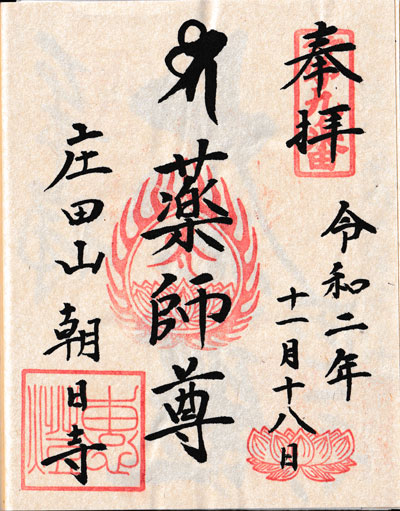 奉拝
令和二年
十一月十八日
薬師尊
庄田山 朝日寺